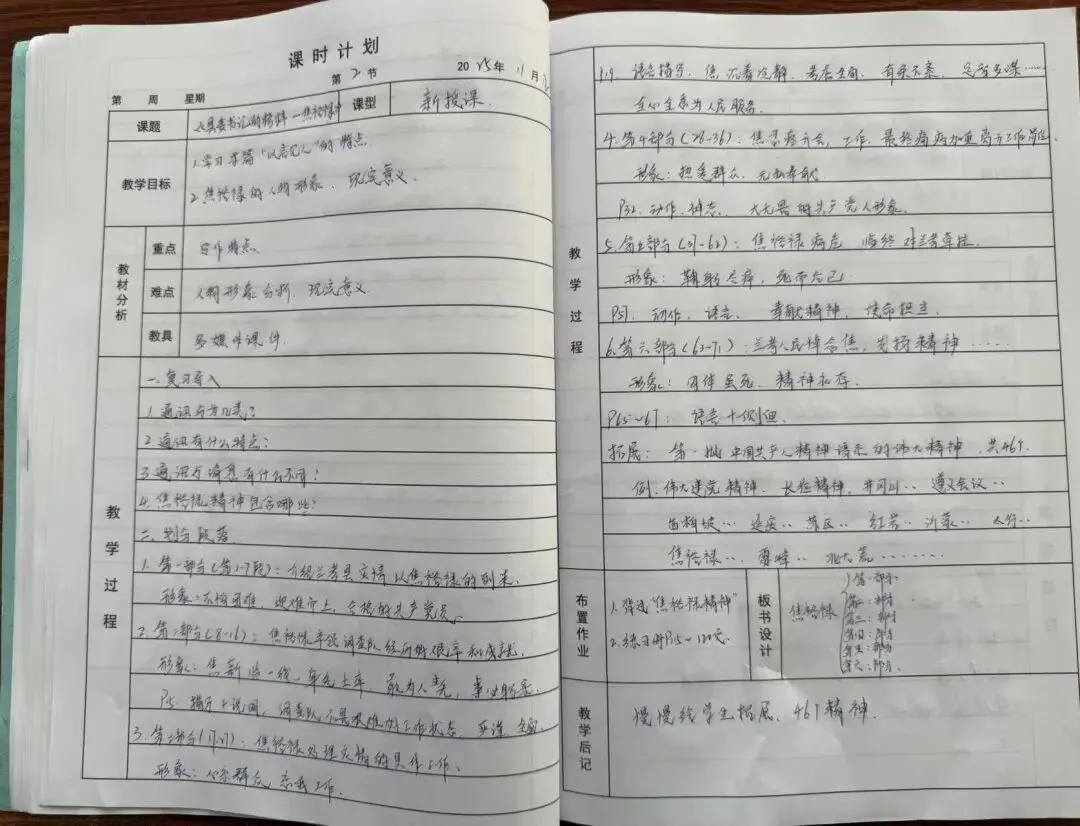 课时计划
第 2 节 2025年 11月
第 周 星期
课题 县委书记的榜样—焦裕禄 课型 新授课
教学目标
1.学习本篇“以言记人”的特点.
2.焦裕禄的人物形象、现实意义
教材分析
重点 写作特点.
难点 人物形象分析、现实意义.
教具 多媒体课件.
教学过程
一.复习导入
1.通讯有哪几类?
2.通讯有什么特点?
3.通讯与消息有什么不同?
4.焦裕禄精神包含哪些?
二.划分段落
1.第一部分(第1-7段):介绍兰考县灾情以焦裕禄的到来.
形象:不怕困难,迎难而上,合格的共产党员.
2.第二部分(8-16):焦裕禄率领调查队经历的艰辛和成就.
形象:焦 一线、身先士卒、事必躬亲.
P15. 描写+说明,调查队不畏艰难的工作状态 全面.
3.第三部分(17-27):焦裕禄处理灾情的具体工作.
形象:心系群众,忘我工作.
P19. 语言描写,焦沉着冷静、考虑全面、有条不紊、足智多谋……
全心全意为人民服务.
4.第4部分(28-36):焦 工作,最终病痛加重离开工作岗位.
形象:热爱群众、无私奉献.
P32.动作、神态、大无畏的共产党人形象.
5.第五部分(37-62):焦裕禄病危 临终对兰考牵挂.
形象:鞠躬尽瘁,死而后已.
P51. 动作、语言、奉献精神,使命担当.
6.第六部分(63-71):兰考人民悼念焦,发扬精神……
形象:身体虽死,精神永存.
P65~67:语言+侧面.
拓展:第一批中国共产党人精神谱系的伟大精神,共46个.
例:伟大建党精神、长征精神、井冈山‥ 遵义会议‥
西柏坡‥ 延安‥ 苏区‥ 红岩‥ 沂蒙‥ 太行‥
焦裕禄‥ 雷锋‥ 北大荒……
布置作业
1.背过“焦裕禄精神”
2.练习册P115~120页.
板书设计
焦裕禄
第一部分
第二:部分
第三:部分
第四:部分
第五:部分
第六:部分.
教学后记
慢慢给学生拓展,46个精神.